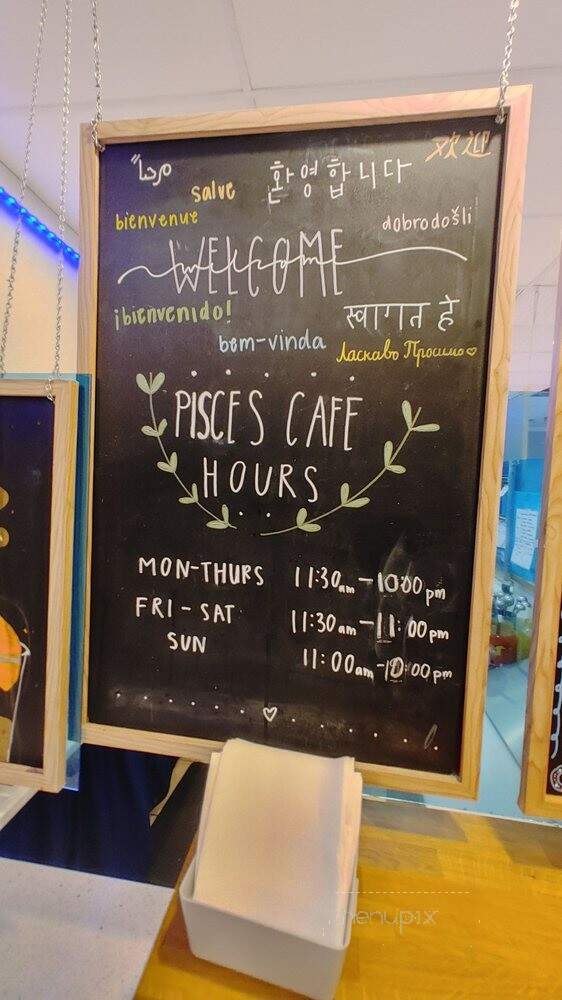 مرحباً
salve
환영합니다
欢迎
bienvenue
dobrodošli
WELCOME
¡bienvenido!
स्वागत हे
bem-vinda
Ласкаво Просимо
PISCES CAFE
HOURS
MON-THURS 11:30am-10:00pm
FRI-SAT 11:30am-11:00pm
SUN 11:00am-10:00pm
menupix